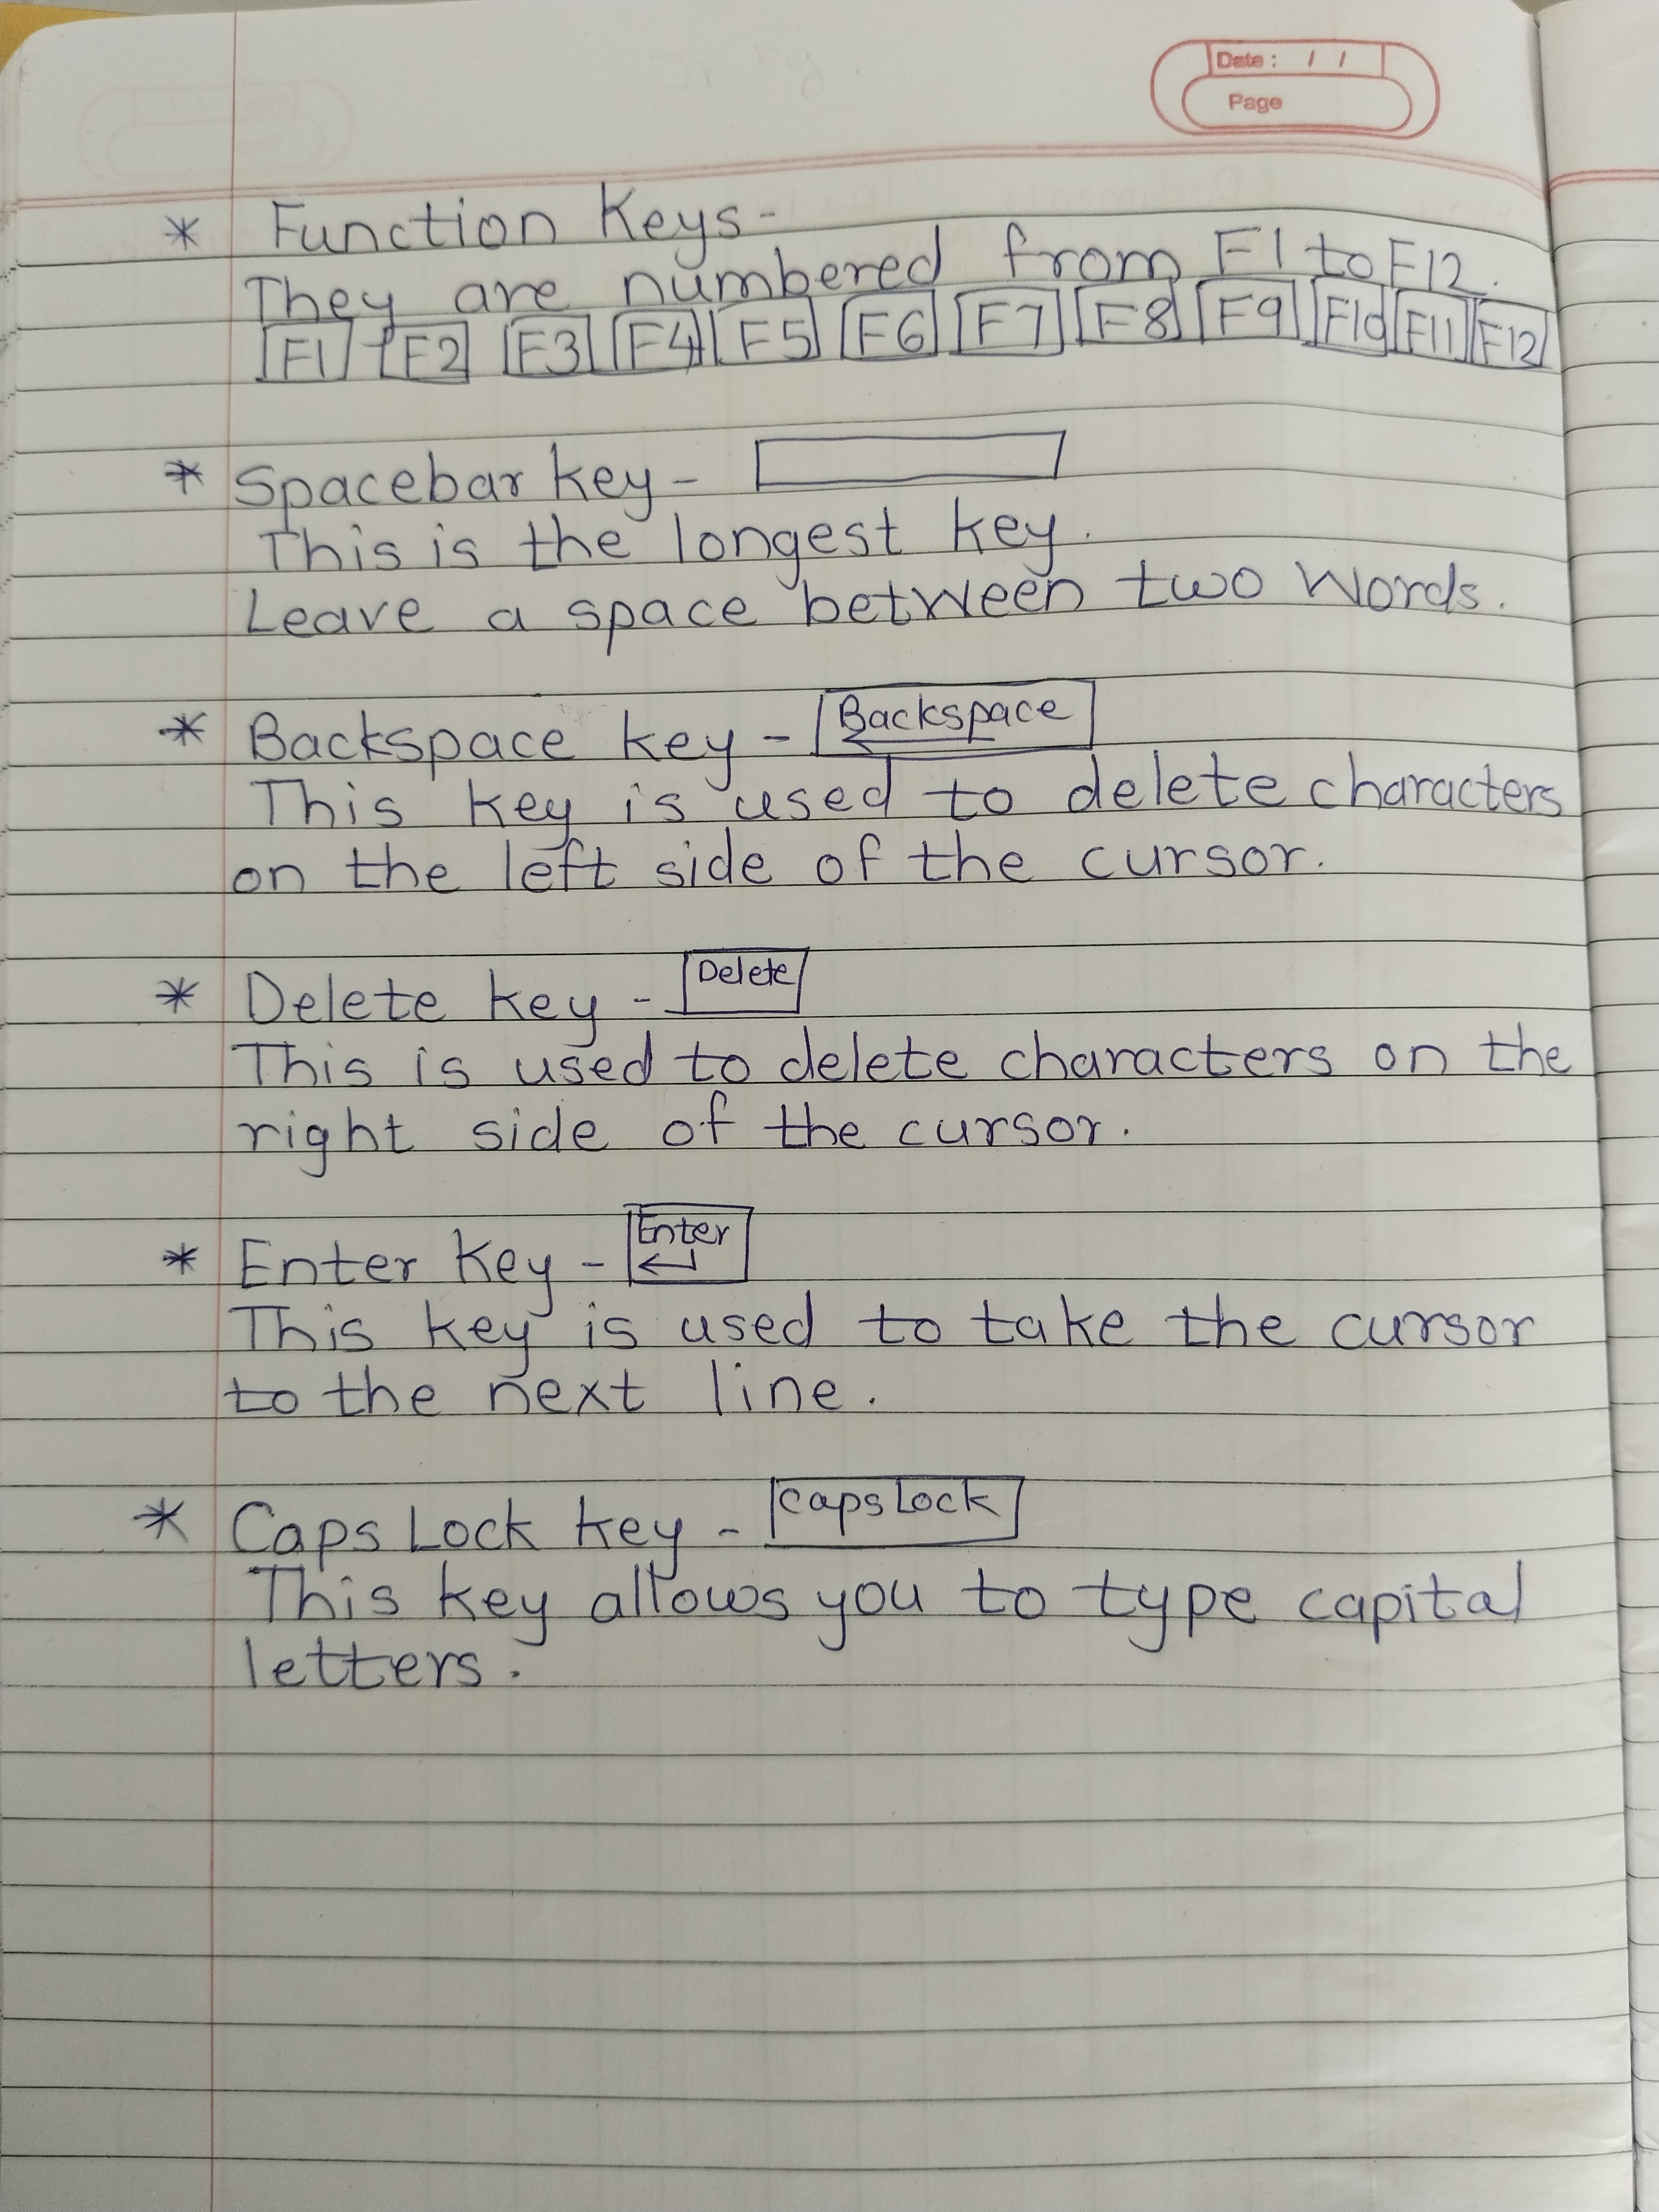 Date : / /
Page
* Function Keys-
They are numbered from F1 to F12.
F1 F2 F3 F4 F5 F6 F7 F8 F9 F10 F11 F12
* Spacebar key-
This is the longest key.
Leave a space between two words.
* Backspace key - Backspace
This key is used to delete characters
on the left side of the cursor.
* Delete key - Delete
This is used to delete characters on the
right side of the cursor.
* Enter Key - Enter
This key is used to take the cursor
to the next line.
* Caps Lock key - Caps Lock
This key allows you to type capital
letters.